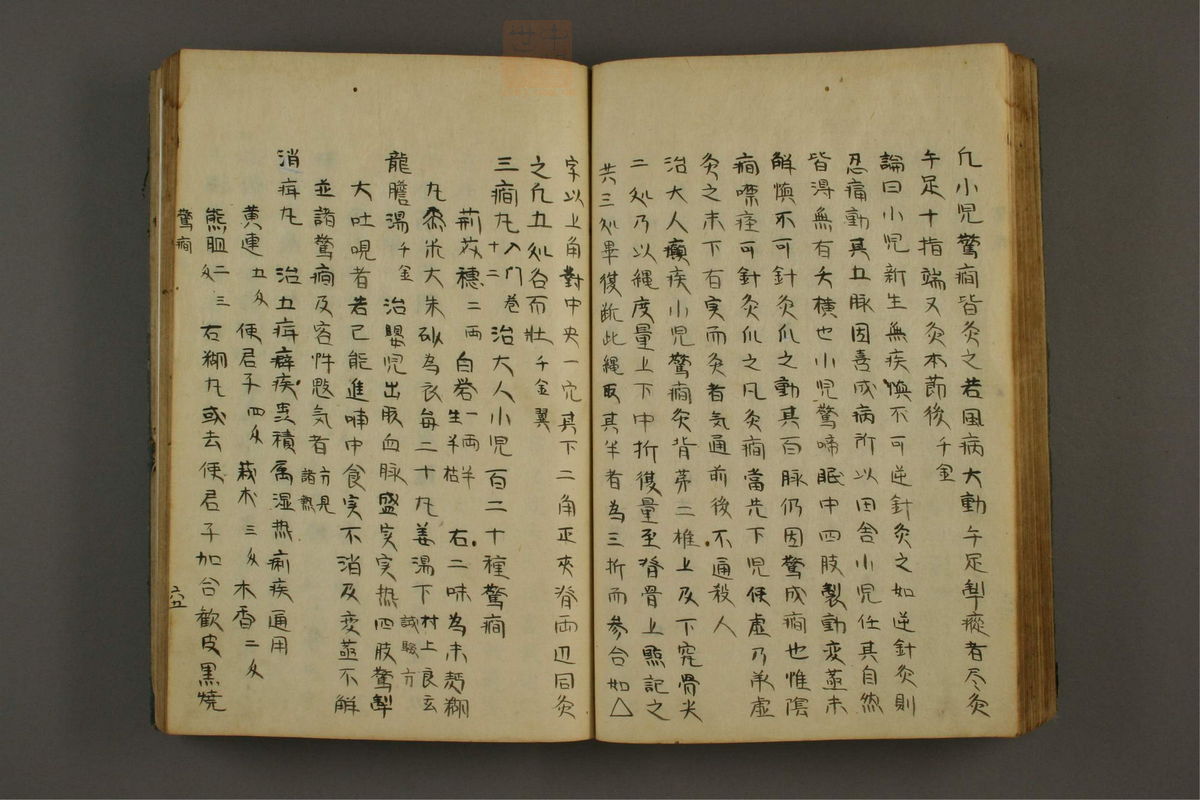 凡小児驚癇皆灸之若風病大動手足掣瘲者尽灸
手足十指端又灸本節後 千金
論曰小児新生無疾慎不可逆針灸之如逆針灸則
忍痛動其五脉因喜成病所以田舎小児任其自然
皆得無有夭横也小児驚啼眠中四肢製動変蒸未
解慎不可針灸爪之動其百脉仍因驚成癇也惟陰
癇噤痓可針灸爪之凡灸癇當先下児使虚乃承虚
灸之未下有実而灸者気通前後不通殺人
治大人癲疾小児驚癇灸背第二椎上及下窮骨尖
二処乃以縄度量上下中折復量至脊骨上點記之
共三処畢復断此縄取其半者為三折而参合如△
字以上角對中央一穴其下二角正夾脊両辺同灸
之凡五処各而壮 千金翼
三癇丸 入门 巻十二 治大人小児百二十種驚癇
荊芥穂 二両 白礬 一両半 生半枯 右二味為末麪糊
丸黍米大朱砂為衣毎二十丸姜湯下 村上良玄 試驗方
龍膽湯 千金 治嬰児出腹血脉盛実実热四肢驚掣
大吐哯者若已能進哺中食実不消及変蒸不解
並諸驚癇及客忤鬾気者 方見 諸熱
消疳丸 治五疳癖疾蚤積属湿热痢疾通用
黄連 五匁 使君子 四匁 莪朮 三匁 木香 二匁
熊胆 二三匁 右糊丸或去使君子加合歓皮黒焼
驚癇
六五